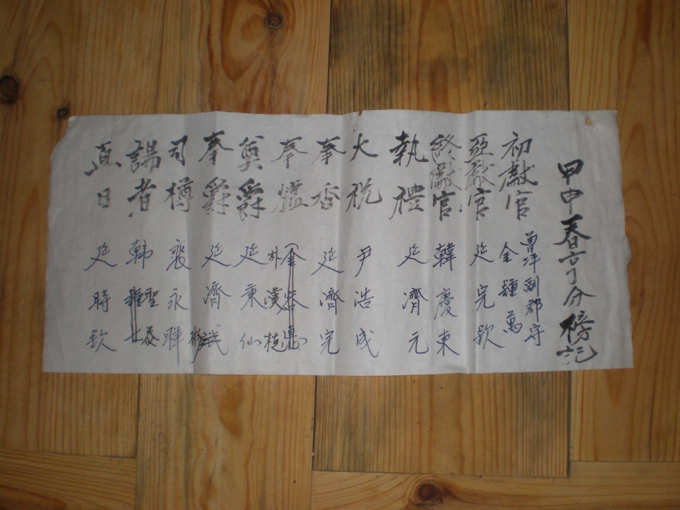 甲申春享分榜記
初獻官 曾坪副郡守 金鍾萬
亞獻官 延完欽
終獻官 韓慶東
執禮 延濟元
大祝 尹浩成
奉香 延濟完
奉爐 朴漢植
奠爵 延秉仙
奉爵 延濟
司樽 裵永暉
謁者 韓聖泰
直日 延時欽